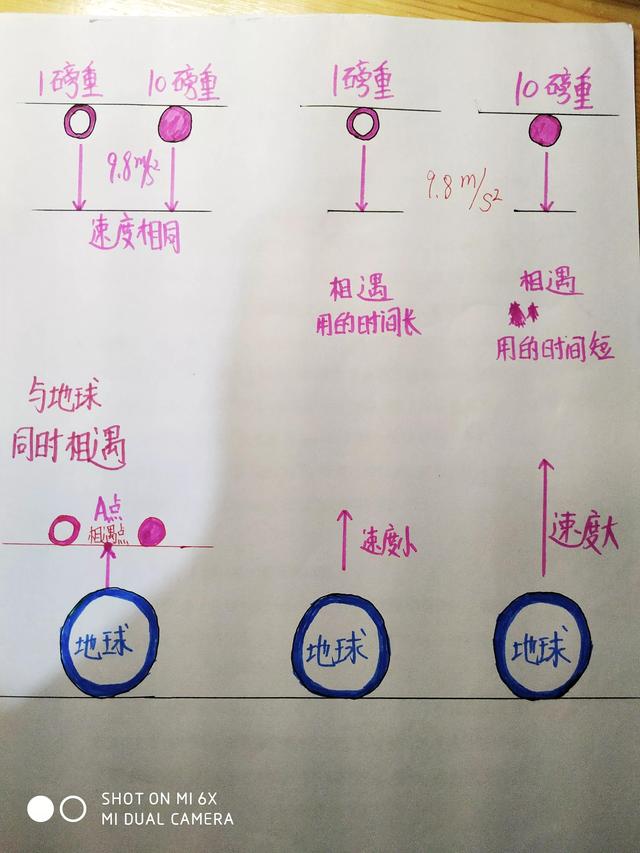 1磅重
10磅重
1磅重
10磅重
9.8m/s²
9.8m/s²
速度相同
相遇
用的时间长
相遇
用的时间短
与地球
同时相遇
A点
相遇点
速度小
速度大
地球
地球
地球
SHOT ON MI 6X
MI DUAL CAMERA